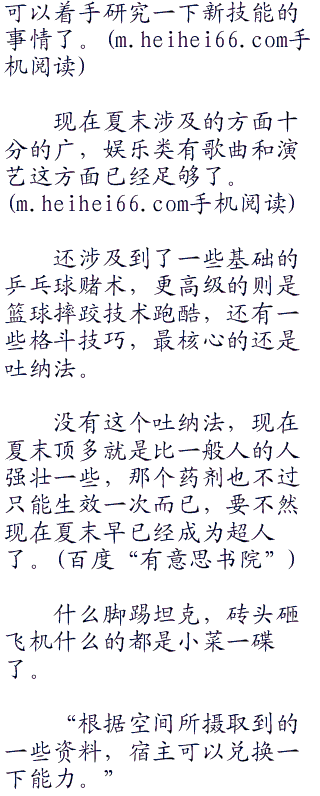 可以着手研究一下新技能的
事情了。(m.heihei66.com手
机阅读)
现在夏末涉及的方面十
分的广，娱乐类有歌曲和演
艺这方面已经足够了。
(m.heihei66.com手机阅读)
还涉及到了一些基础的
乒乓球赌术，更高级的则是
篮球摔跤技术跑酷，还有一
些格斗技巧，最核心的还是
吐纳法。
没有这个吐纳法，现在
夏末顶多就是比一般人的人
强壮一些，那个药剂也不过
只能生效一次而已，要不然
现在夏末早已经成为超人
了。(百度“有意思书院”)
什么脚踢坦克，砖头砸
飞机什么的都是小菜一碟
了。
“根据空间所摄取到的
一些资料，宿主可以兑换一
下能力。”